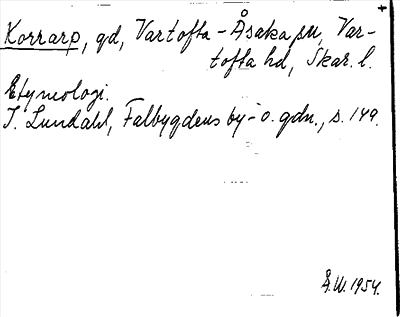 +
Korrarp, gd, Vartofta-Åsaka sn, Var-
tofta hd, Skar. l.
Etymologi.
I. Lundahl, Falbygdens by- o. gdn., s. 149.
Å.W. 1954.